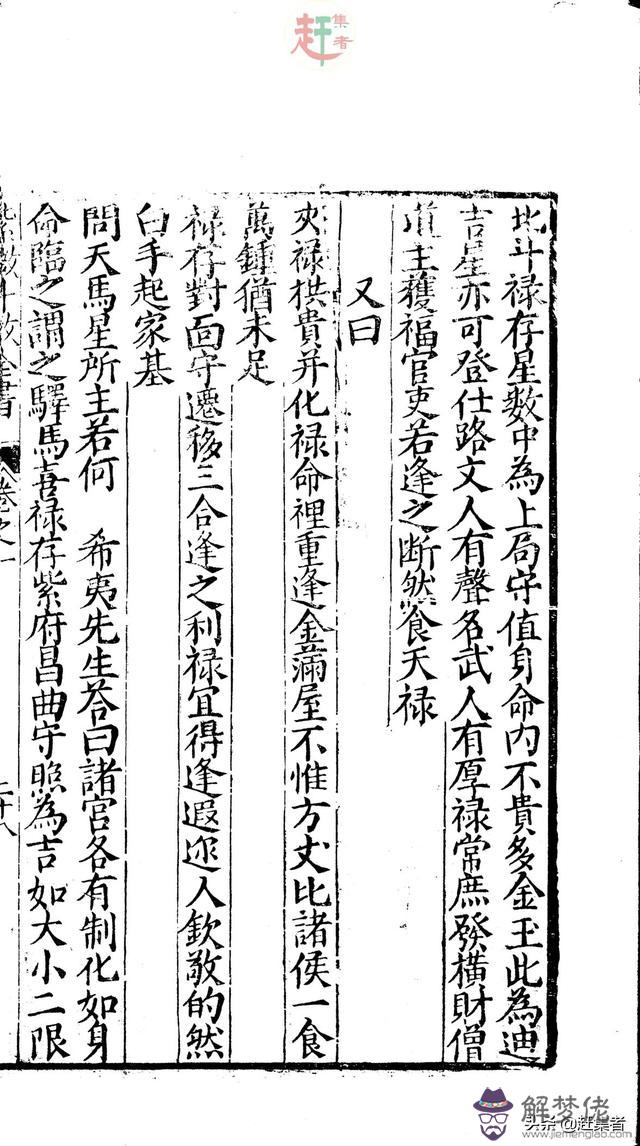 赶集者
北斗禄存星數中為上局守值身命内不貴多金玉此為迪
吉星亦可登仕路文人有聲名武人有厚禄常庶發橫財僧
道主獲福官吏若逢之断然食天禄
又曰
夾禄拱貴并化禄命裡重逢金滿屋不惟方丈比諸侯一食
萬鍾猶未足
禄存對面守遷移三合逢之利禄宜得逢遐迩人欽敬的然
白手起家基
問天馬星所主若何 希夷先生荅曰諸宫各有制化如身
命臨之謂之驛馬喜禄存紫府昌曲守照為吉如大小二限
數斗數全書 卷之一 二十八
解梦佬
头条@赶集者
www.jiemenglao.com